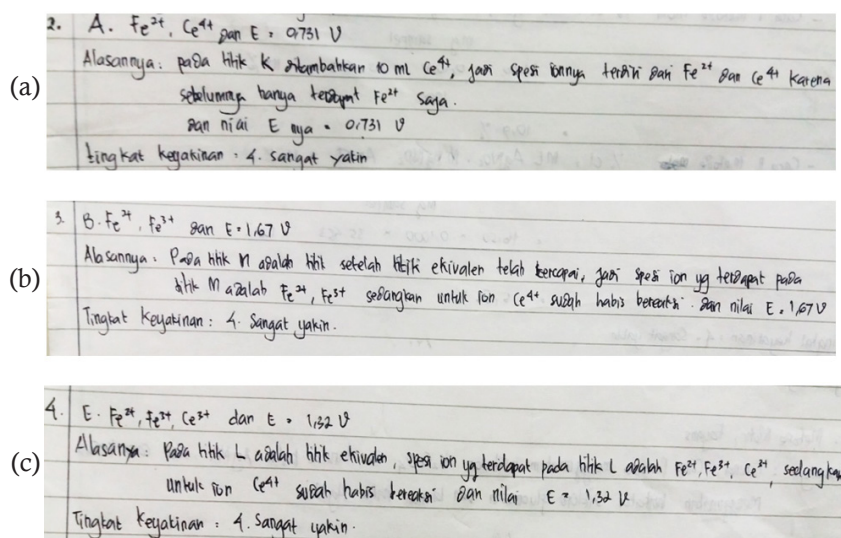 (a)
2. A. Fe²⁺, Ce⁴⁺ dan E = 0,731 V
Alasannya : pada titik K ditambahkan 10 ml Ce⁴⁺, jadi spesi ionnya terdiri dari Fe²⁺ dan Ce⁴⁺ karena
sebelumnya hanya terdapat Fe²⁺ saja.
dan nilai E nya = 0,731 V
tingkat keyakinan : 4. sangat yakin
(b)
3. B. Fe²⁺, Fe³⁺ dan E = 1,67 V
Alasannya : Pada titik M adalah titik setelah titik ekivalen telah tercapai, jadi spesi ion yg terdapat pada
titik M adalah Fe²⁺, Fe³⁺ sedangkan untuk ion Ce⁴⁺ sudah habis bereaksi. dan nilai E = 1,67 V
Tingkat Keyakinan : 4. Sangat yakin.
(c)
4. E. Fe²⁺, Fe³⁺, Ce³⁺ dan E = 1,32 V
Alasanya : Pada titik L adalah titik ekivalen, spesi ion yg terdapat pada titik L adalah Fe²⁺, Fe³⁺, Ce³⁺, sedangkan
untuk ion Ce⁴⁺ sudah habis bereaksi dan nilai E = 1,32 V
Tingkat Keyakinan : 4. Sangat yakin.